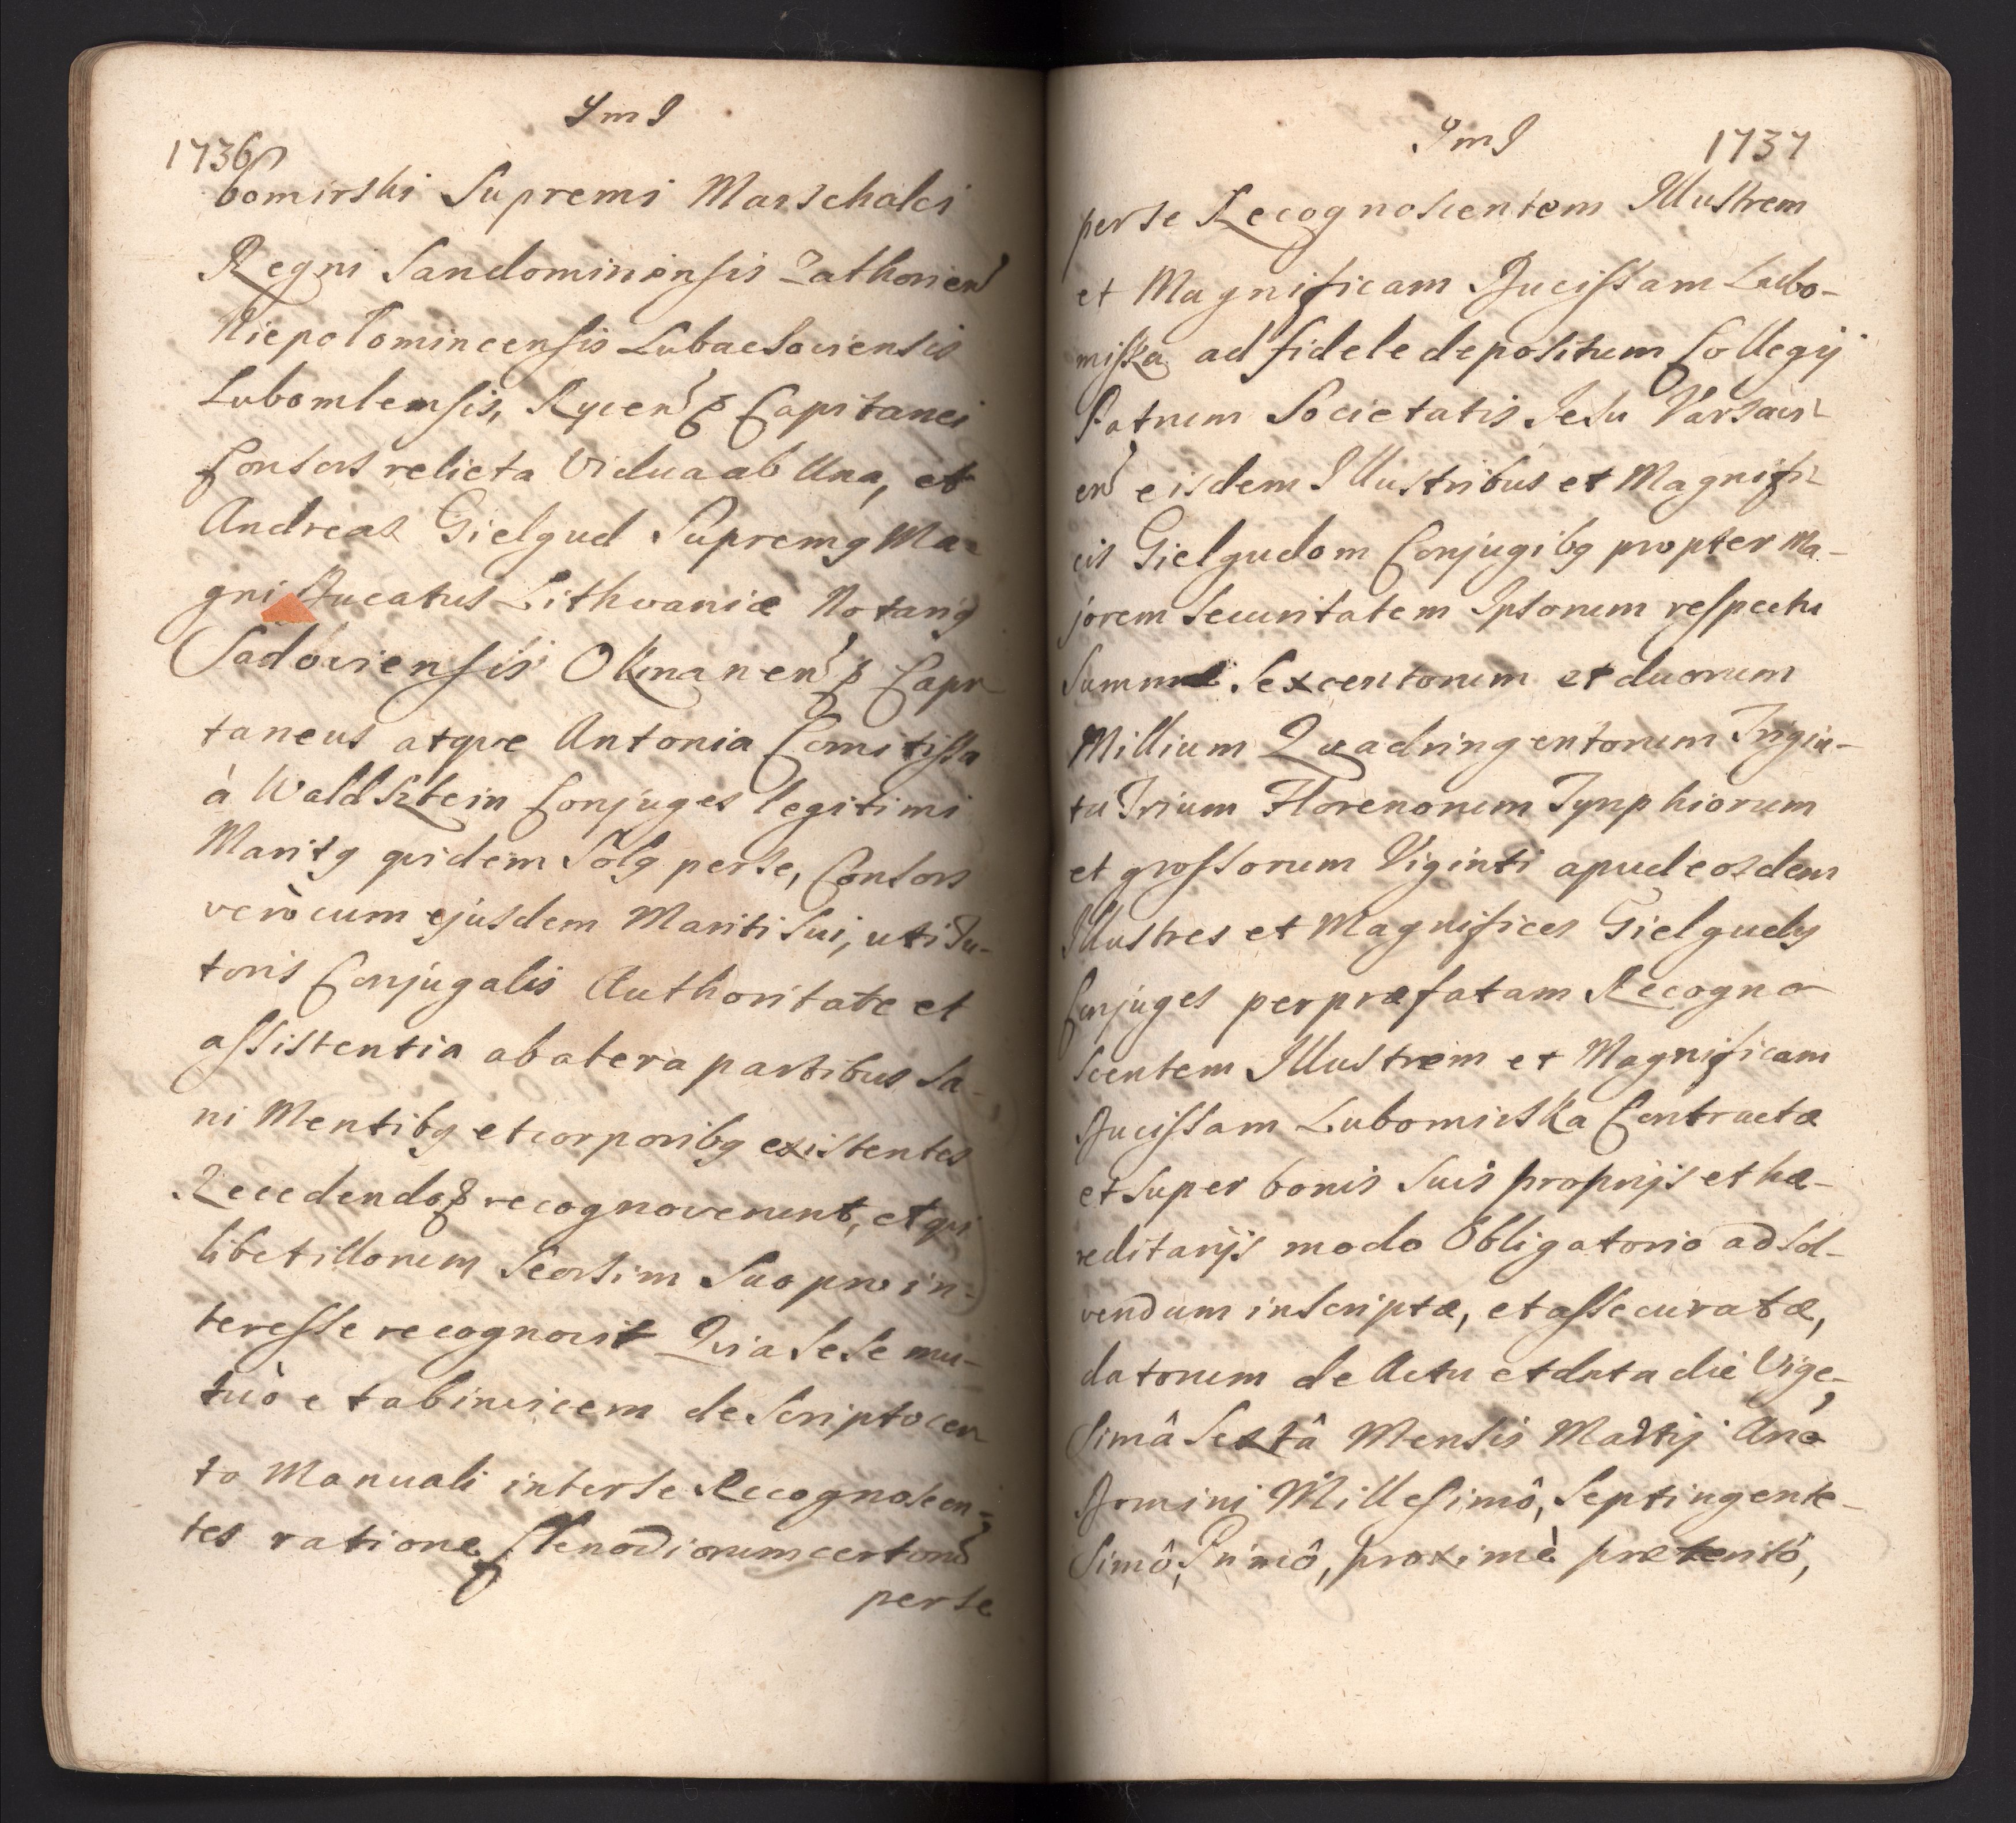 JmJ
1736
bomirski Supremi Marschalci
Regni Sandominiensis Zathorien
Niepolomincensis Lubaczoviensis
Lubomlemsis, Rycen & Capitanei
Consors relicta Vidua ab Una, et
Andreas Gielgud Supremg Ma-
gni Ducatus Lithvaniæ Notarig
Sadoviensis Okmanen & Capi-
taneus atqve Antonia Comitissa
à Waldsztein Conjuges legitimi
Maritg qvidem Solg perse, Consors
verò cum ejusdem Mariti Sui, uti Tu-
toris Conjugalis Authoritate et
assistentia ab atera partibus Sa-
ni Mentibg et corporibg existentes
Recedendo & recognoverunt, et qvi
libet illorum Seorsim Suo pro in-
teresse recognovit Qvia Sese mu-
tuò et ab invicem de Scripto cer
to Manuali inter se Recognoscen-
tes ratione Clenodiorum certorum
perse
JmJ 1737
perse Recognoscentem Illustrem
et Magnificam Ducissam Lubo-
miska ad fidele depositum Collegij
Patrum Societatis Jesu Varsavi-
en eisdem Illustribus et Magnifi-
cis Gielgudom Conjugibg propter Ma-
jorem Securitatem Ipsorum respectu
Summæ Sexcentorum et duorum
Millium Quadringentorum Trigin-
ta Trium Florenorum Tynphiorum
et grossorum Viginti apud eosdem
Illustres et Magnifices Gielgudy
Conjuges per præfatam Recogno-
Scentem Illustrem et Magnificam
Ducissam Lubomirska Contractæ
et Super bonis Suis proprijs et hæ-
reditarijs modo Obligatorio ad Sol-
vendum inscriptæ, et assecuratæ,
datorum de Actu et data die Vige-
Simâ Sextâ Mensis Martij Ano
Domini Millesimô, Septingente-
Simô, Primô, proximè preteritô,